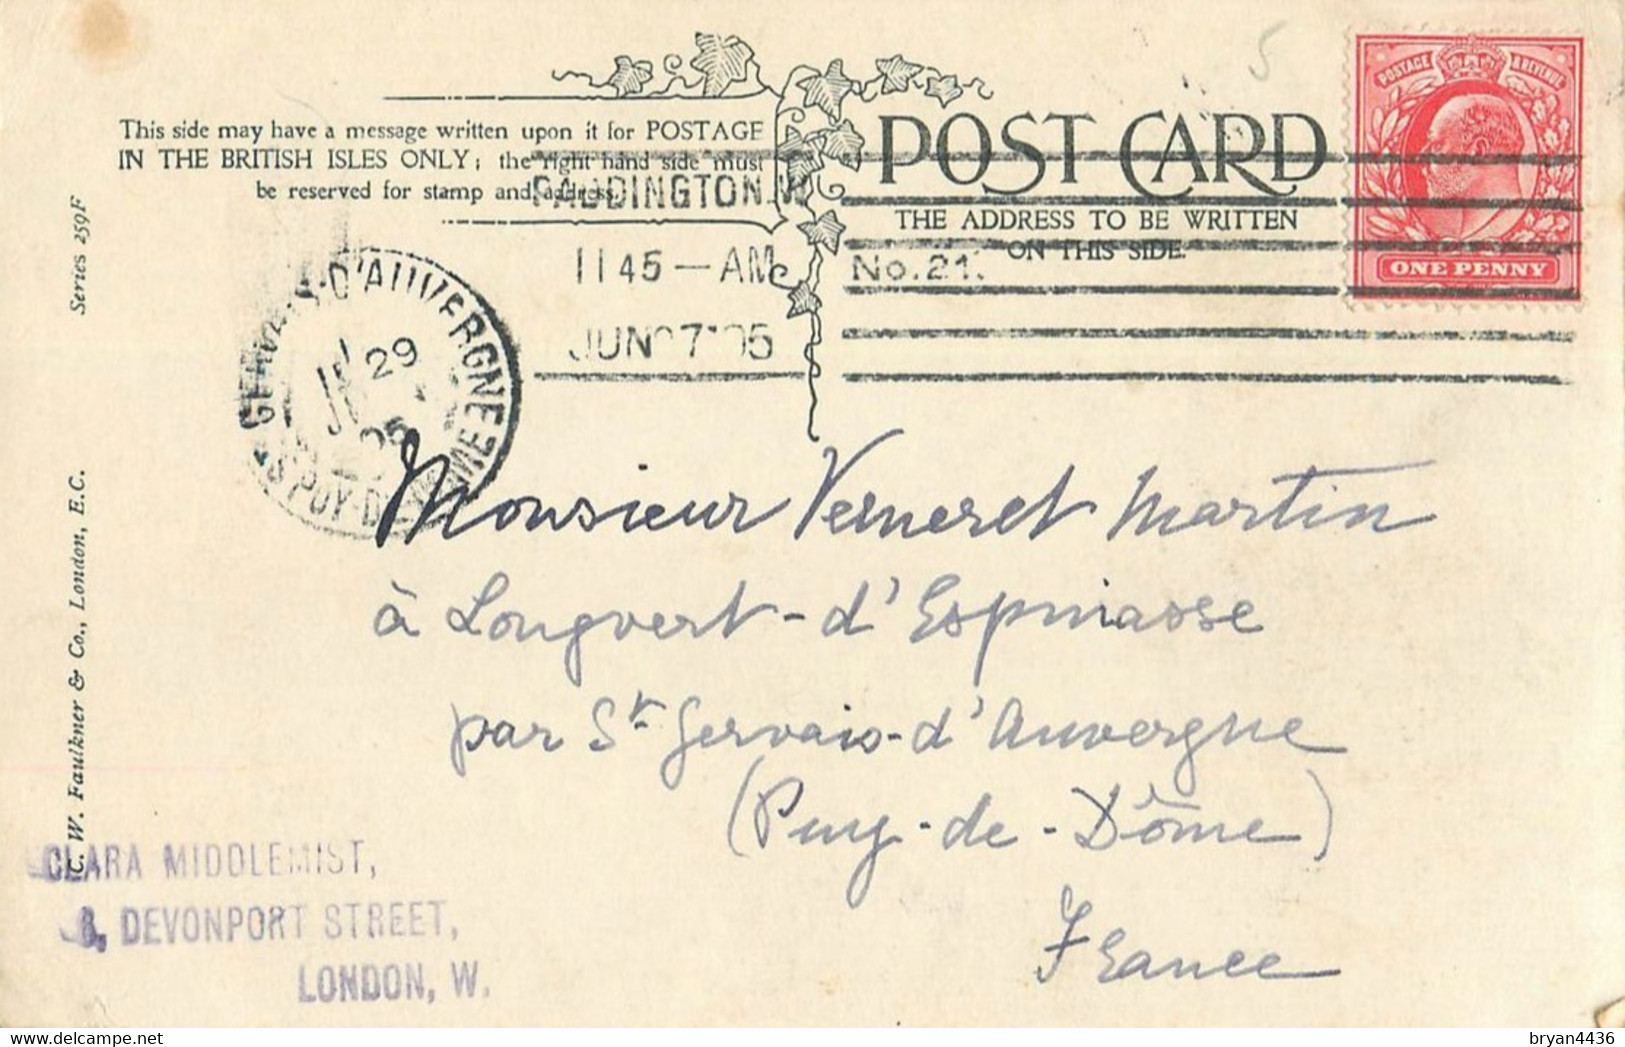 This side may have a message written upon it for POSTAGE
IN THE BRITISH ISLES ONLY; the right hand side must
be reserved for stamp and address.
POST CARD
THE ADDRESS TO BE WRITTEN
ON THIS SIDE.
POSTAGE & REVENUE
ONE PENNY
PADDINGTON. W
11 45 — AM
No. 21.
JUN 7 05
D'AUVERGNE
29
05
PUY-D
Series 259F
C. W. Faulkner & Co., London, E.C.
Monsieur Verneret Martin
à Longvert-d'Espinasse
par St Gervais-d'Auvergne
(Puy-de-Dôme)
France
CLARA MIDDLEMIST,
8, DEVONPORT STREET,
LONDON, W.
bryan4436